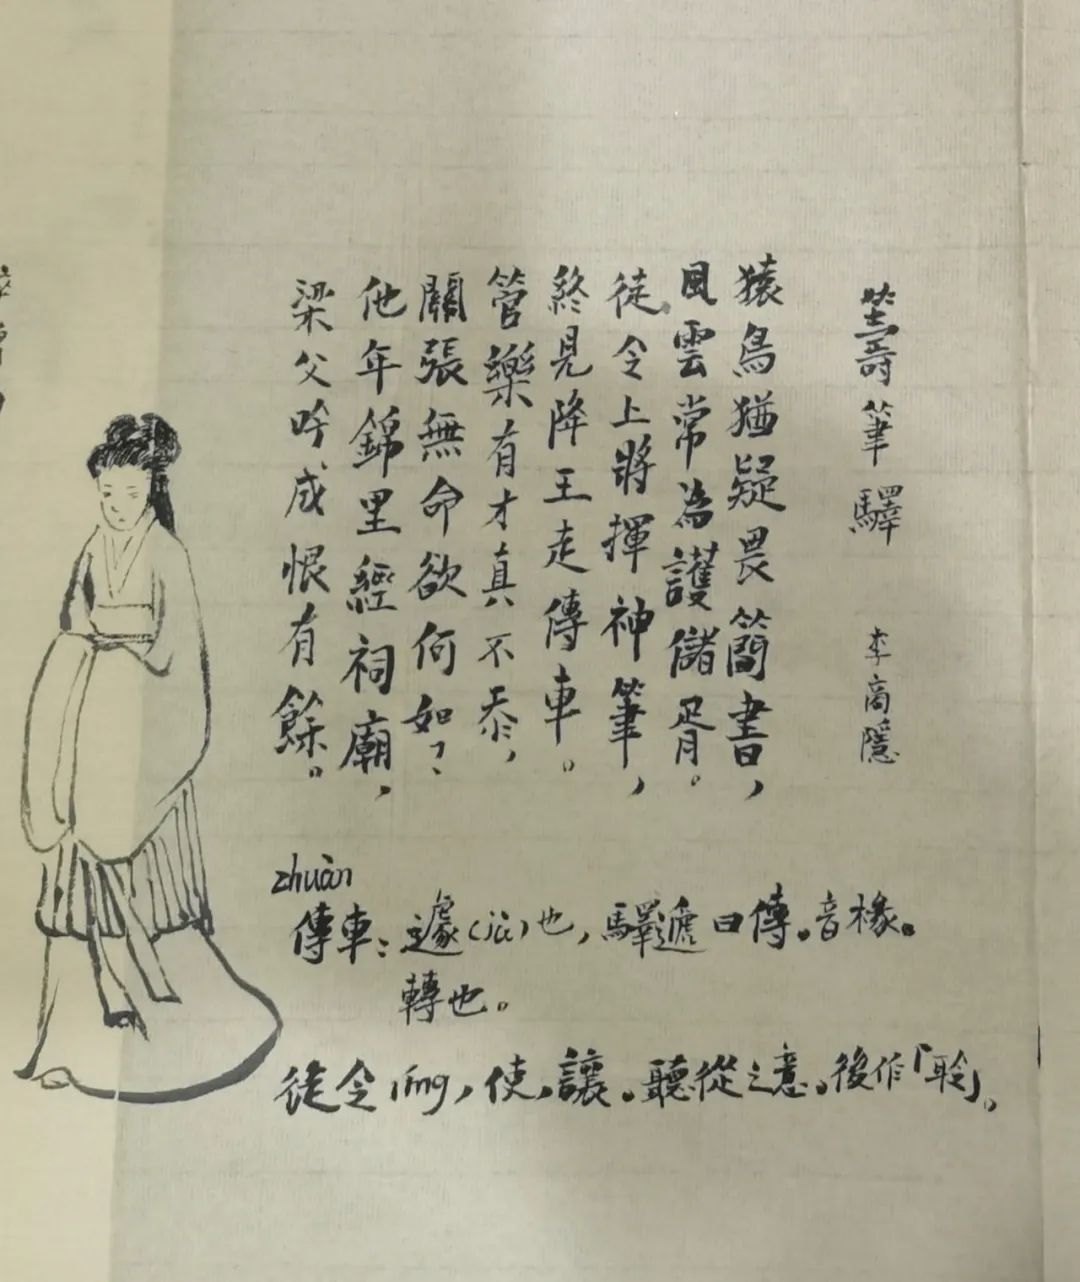 籌筆驛 李商隱
猿鳥猶疑畏簡書，
風雲常為護儲胥。
徒令上將揮神筆，
終見降王走傳車。
管樂有才真不忝，
關張無命欲何如？
他年錦里經祠廟，
梁父吟成恨有餘。
zhuàn
傳車：遽(jù)也，驛遞曰傳。音椽。
轉也。
徒令líng，使，讓。聽從之意。後作「聆」。